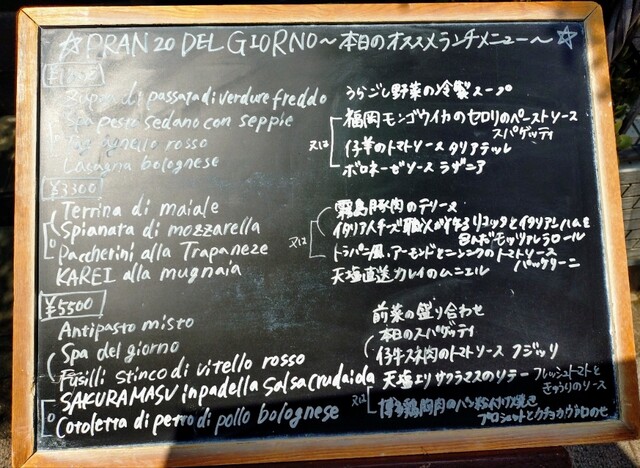 ☆ PRANZO DEL GIORNO ~本日のオススメランチメニュー~ ☆
Zuppa di passata di verdure freddo うらごし野菜の冷製スープ
Spa pesto sedano con seppie 福岡モンゴウイカのセロリのペーストソース スパゲッティ
agnello rosso 又は 仔羊のトマトソース タリアテッレ
Lasagna bolognese ボロネーゼソース ラザニア
¥3300
Terrina di maiale 霧島豚肉のテリーヌ
o Spianata di mozzarella 又は イタリアチーズ職人が作るリコッタとイタリアンハムを
包んだモッツァレラロール
Paccherini alla Trapaneze トラパニ風、アーモンドとニンニクのトマトソース
パッケリーニ
KAREI alla mugnaia 天塩直送カレイのムニエル
¥5500
Antipasto misto 前菜の盛り合わせ
Spa del giorno 本日のスパゲッティ
Fusilli stinco di vitello rosso 仔牛スネ肉のトマトソース フジッリ
SAKURAMASU inpadella Salsa crudaiola 天塩よりサクラマスのソテー フレッシュトマトと
きゅうりのソース
o Cotoletta di petto di pollo bolognese 又は 博多鶏胸肉のパン粉付け焼き
プロシュットとカチョカヴァロのせ